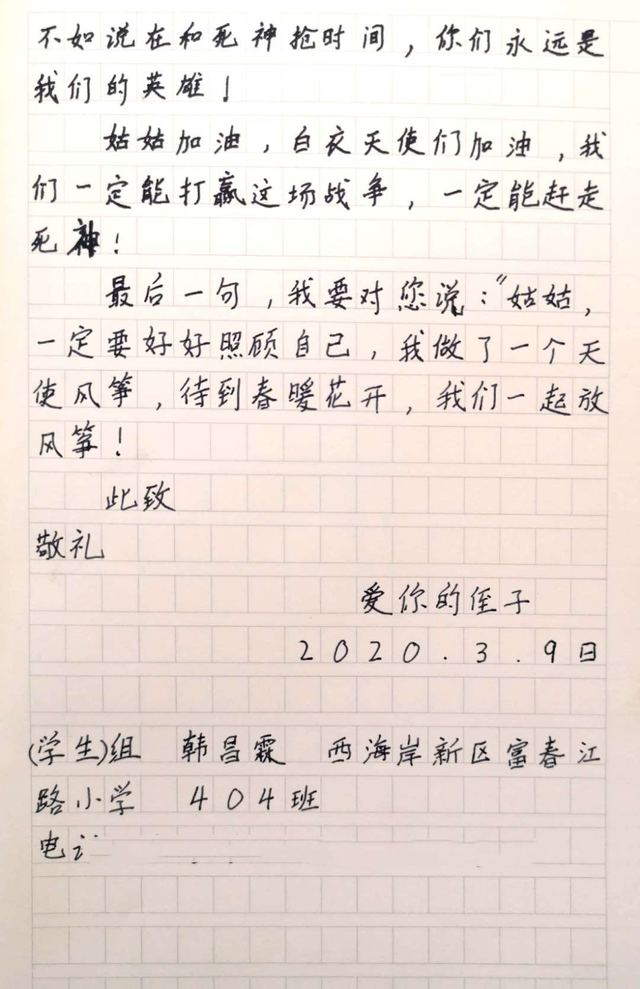 不如说在和死神抢时间，你们永远是
我们的英雄！
姑姑加油，白衣天使们加油，我
们一定能打赢这场战争，一定能赶走
死神！
最后一句，我要对您说：“姑姑，
一定要好好照顾自己，我做了一个天
使风筝，待到春暖花开，我们一起放
风筝！
此致
敬礼
爱你的侄子
2020.3.9日
(学生)组 韩昌霖 西海岸新区富春江
路小学 404班
电